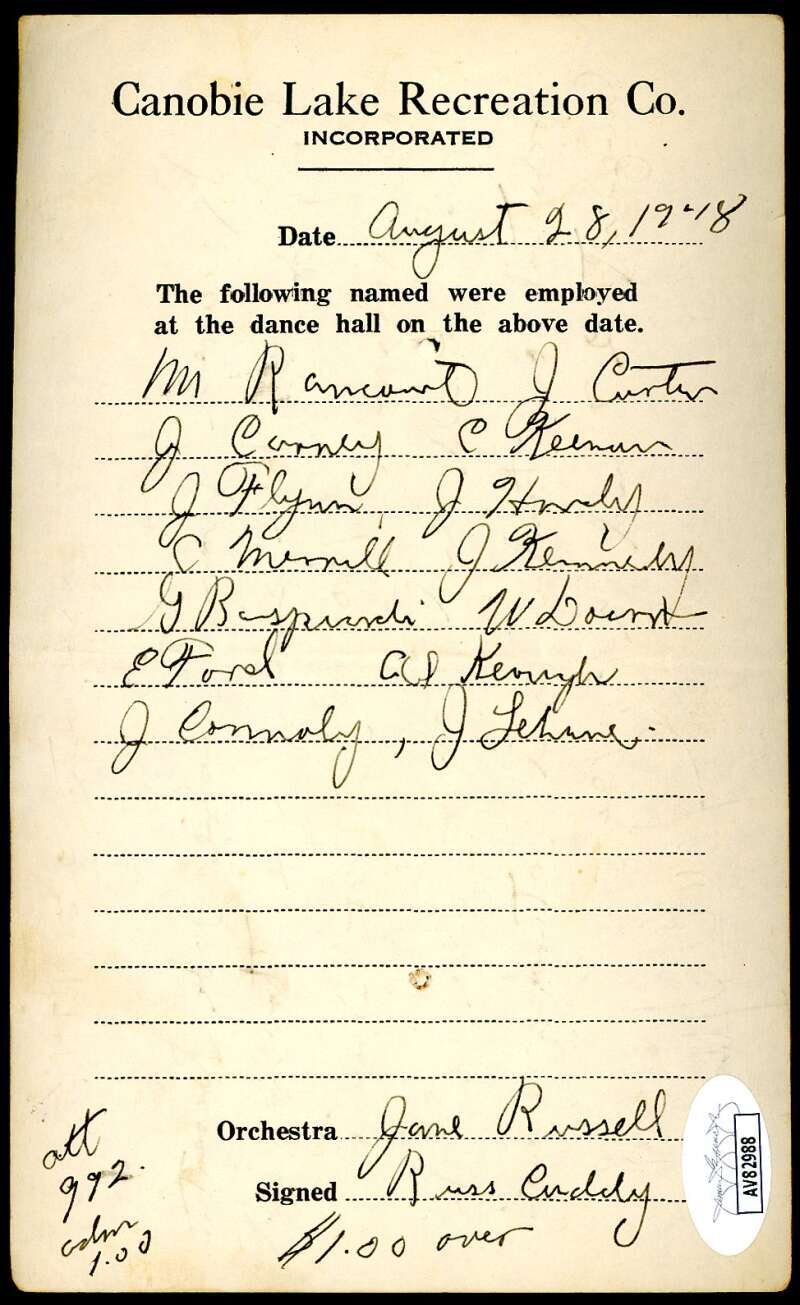 Canobie Lake Recreation Co.
INCORPORATED
Date August 28, 1948
The following named were employed
at the dance hall on the above date.
Mr Rancourt J Curtin
J Carney C Keenan
J Flynn, J Hardy
C Merrill J Kennedy
G W
E Ford Al Keough
J Connoly, J Lehane.
Orchestra Jane Russell
Signed Russ Cuddy
$1.00 over
att
992.
adm
1.00
AV82988